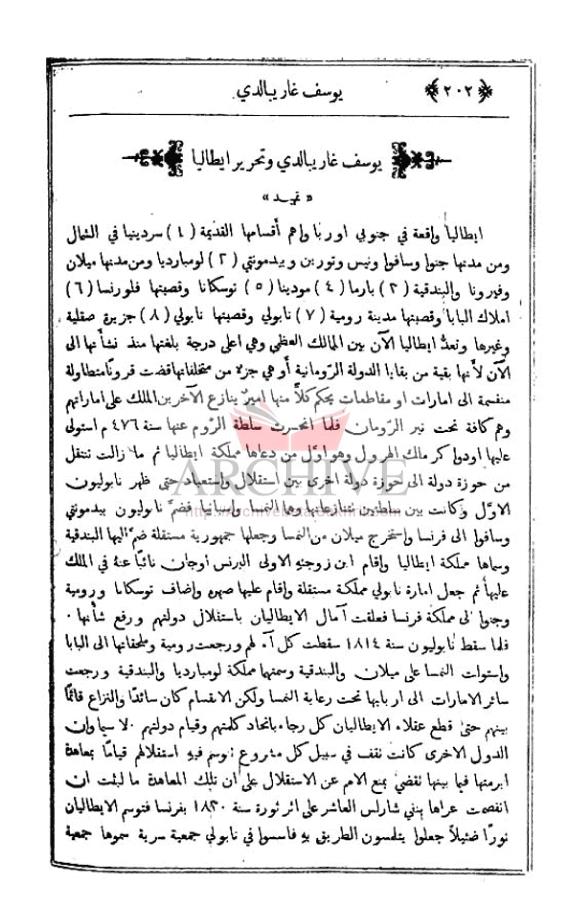 ﴿٢٠٢﴾ يوسف غاريبالدي
يوسف غاريبالدي وتحرير ايطاليا
« تمهيد »
ايطاليا واقعة في جنوبي اوربا واهم أقسامها القديمة (١) سردينيا في الشمال
ومن مدنها جنوا وسافوا ونيس وتورين وبيدمونتي (٢) لومبارديا ومن مدنها ميلان
وفيرونا والبندقية (٣) بارما (٤) مودينا (٥) توسكانا وقصبتها فلورنسا (٦)
املاك البابا وقصبتها مدينة رومية (٧) نابولي وقصبتها نابولي (٨) جزيرة صقلية
وغيرها وتعدُّ ايطاليا الآن بين الممالك العظمى وهي اعلى درجة بلغتها منذ نشأتها الى
الآن لأنها بقية من بقايا الدولة الرّومانية أو هي جزء من متخلفاتها قضت قرونًا متطاولة
منقسمة الى امارات او مقاطعات يحكم كلاًّ منها اميرٌ ينازع الآخرين الملك على اماراتهم
وهم كافة تحت نير الرّومان فلما انحسرت سلطة الرّوم عنها سنة ٤٧٦ م استولى
عليها اودواكر مالك الهرول وهو اوّل من دعاها مملكة ايطاليا ثم ما زالت تنتقل
من حوزة دولة الى حوزة دولة اخرى بين استقلال واستعباد حتى ظهر نابوليون
الاوّل وكانت بين سلطتين تتنازعانها وها النمسا واسبانيا فضمَّ نابوليون بيدمونتي
وسافوا الى فرنسا واستخرج ميلان من النمسا وجعلها جمهورية مستقلة ضمَّ اليها البندقية
وسماها مملكة ايطاليا وإقام ابن زوجتهِ الاولى البرنس أوجان نائبًا عنهُ في الملك
عليها ثم جعل امارة نابولي مملكة مستقلة وإقام عليها صهرهُ وإضاف توسكانا ورومية
وجنوا الى مملكة فرنسا فعلقت آمال الايطاليان باستقلال دولتهم ورفع شأنها ٠
فلما سقط نابوليون سنة ١٨١٤ سقطت كل آمالهم ورجعت رومية وملحقاتها الى البابا
واستولت النمسا على ميلان والبندقية وسمتها مملكة لومبارديا والبندقية ورجعت
سائر الامارات الى اربابها تحت رعاية النمسا ولكن الانقسام كان سائدًا والنزاع قائمًا
بينهم حتى قطع عقلاء الايطاليان كل رجاء باتحاد كلمتهم وقيام دولتهم ٠ لا سيما وإن
الدول الاخرى كانت تقف في سبيل كل مشروع توسم فيهِ استقلالهم قيامًا بمعاهدة
ابرمتها فيما بينها تقضي بمنع الامم عن الاستقلال على أن تلك المعاهدة ما لبثت ان
انفصمت عراها بنفي شارلس العاشر على اثر ثورة سنة ١٨٣٠ بفرنسا فتوسم الايطاليان
نورًا ضئيلاً جعلوا يتلمسون الطريق بهِ فاسسوا في نابولي جمعية سرية سموها جمعية
ARCHIVE